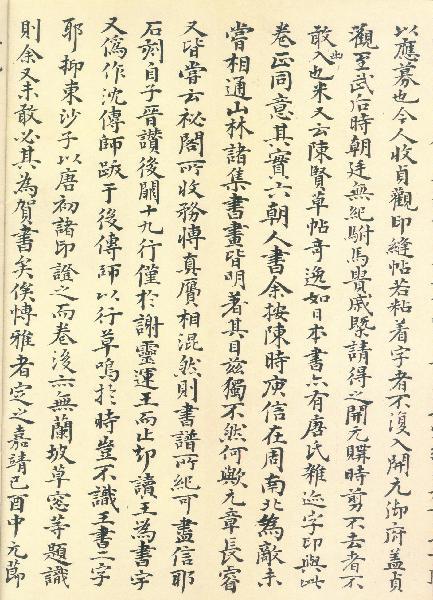 以應募也今人收貞觀印縫帖若粘着字者不復入開元御府蓋貞
觀至武后時朝廷無紀駙馬貴戚槩請得之開元購時剪不去者不
敢入此也米又云陳賢草帖奇逸如日本書亦有唐氏雜迹字印與此
卷正同意其實六朝人書余按陳時庾信在周南北為敵未
嘗相通山林諸集書畫皆明著其目茲獨不然何歟元章長睿
又皆嘗云祕閣所收務博真贗相混然則書譜所紀可盡信耶
石刻自子晉讚後闕十九行僅於謝靈運王而止却讀王為書字
又偽作沈傳師跋于後傳師以行草鳴於時豈不識王書二字
耶抑東沙子以唐初諸印證之而卷後亦無蘭坡草窗等題識
則余又未敢必其為賀書矣俟博雅者定之嘉靖己酉中元節